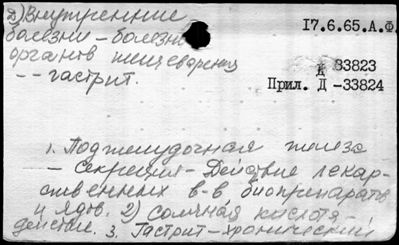 2) Внутренние
болезни – болезни
органов пищеварения
-- гастрит.
17.6.65.А.Ф.
Д 33823
Прил. Д -33824
1. Поджелудочная железа
– секреция – Действие лекар-
ственных в-в биопрепаратов
и ядов. 2) Соляная кислота-
действие. 3. Гастрит – хронический